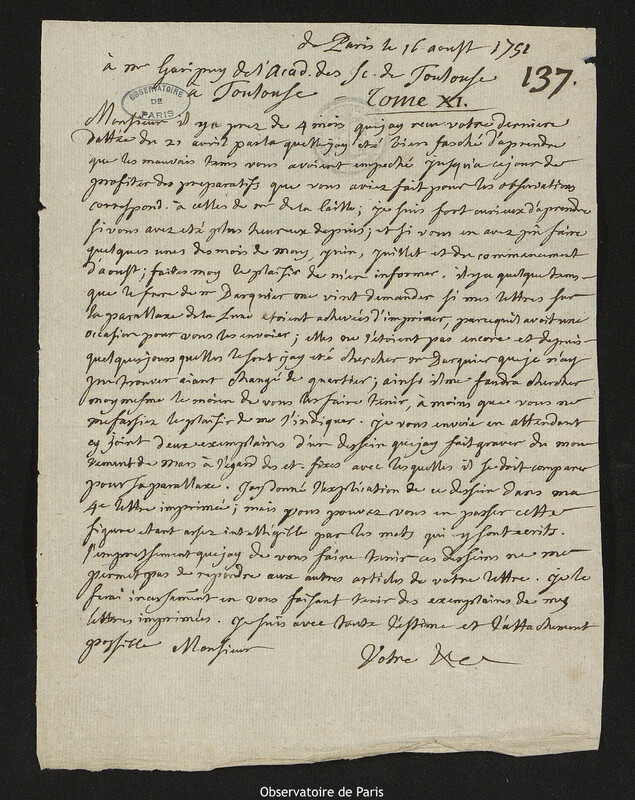 de Paris le 16 aoust 1751
à mr Garipuy de l'Acad. des Sc. de Toulouse
137.
à Toulouse Tome XI.
OBSERVATOIRE DE PARIS
Monsieur il y a prez de 4 mois que j'ay receu votre derniere
dattée du 21 avril par la quelle j'ay eté bien fasché d'aprendre
que les mauvais tems vous avoient empeché jusqu'a ce jour de
profiter des preparatifs que vous aviez fait pour les observations
correspond. à celles de mr de la Caille; je suis fort curieux d'aprendre
si vous avez eté plus heureux depuis; et si vous en avez pu faire
quelques unes des mois de may, juin, juillet et du commencement
d'aoust; faites moy le plaisir de m'en informer. il y a quelque tems
que le frere de mr Darquier me vint demander si mes lettres sur
la parallaxe de la Lune etoient achevées d'imprimer, parcequ'il avoit une
occasion pour vous les envoier; elles ne l'étoient pas encore et depuis
quelques jours qu'elles le sont j'ay eté chercher mr Darquier que je n'ay
pu trouver aiant changé de quartier; ainsi il me faudra chercher
moy mesme le moien de vous les faire tenir, à moins que vous ne
me fassiez le plaisir de me l'indiquer. Je vous envoie en attendant
cy joint deux exemplaires d'un dessein que j'ay fait graver du mou
vement de Mars à l'égard des et. fixes avec lesquelles il se doit comparer
pour sa parallaxe. J'ay donné l'explication de ce dessein dans ma
4e lettre imprimée; mais vous pouvez vous en passer cette
figure etant assez intelligible par les mots qui y sont ecrits.
L'empressement que j'ay de vous faire tenir ces desseins ne me
permet pas de repondre aux autres articles de votre lettre. Je le
ferai incessamment en vous faisant tenir des exemplaires de mes
lettres imprimées. Je suis avec toute l'estime et l'attachement
possible Monsieur Votre &c
Observatoire de Paris